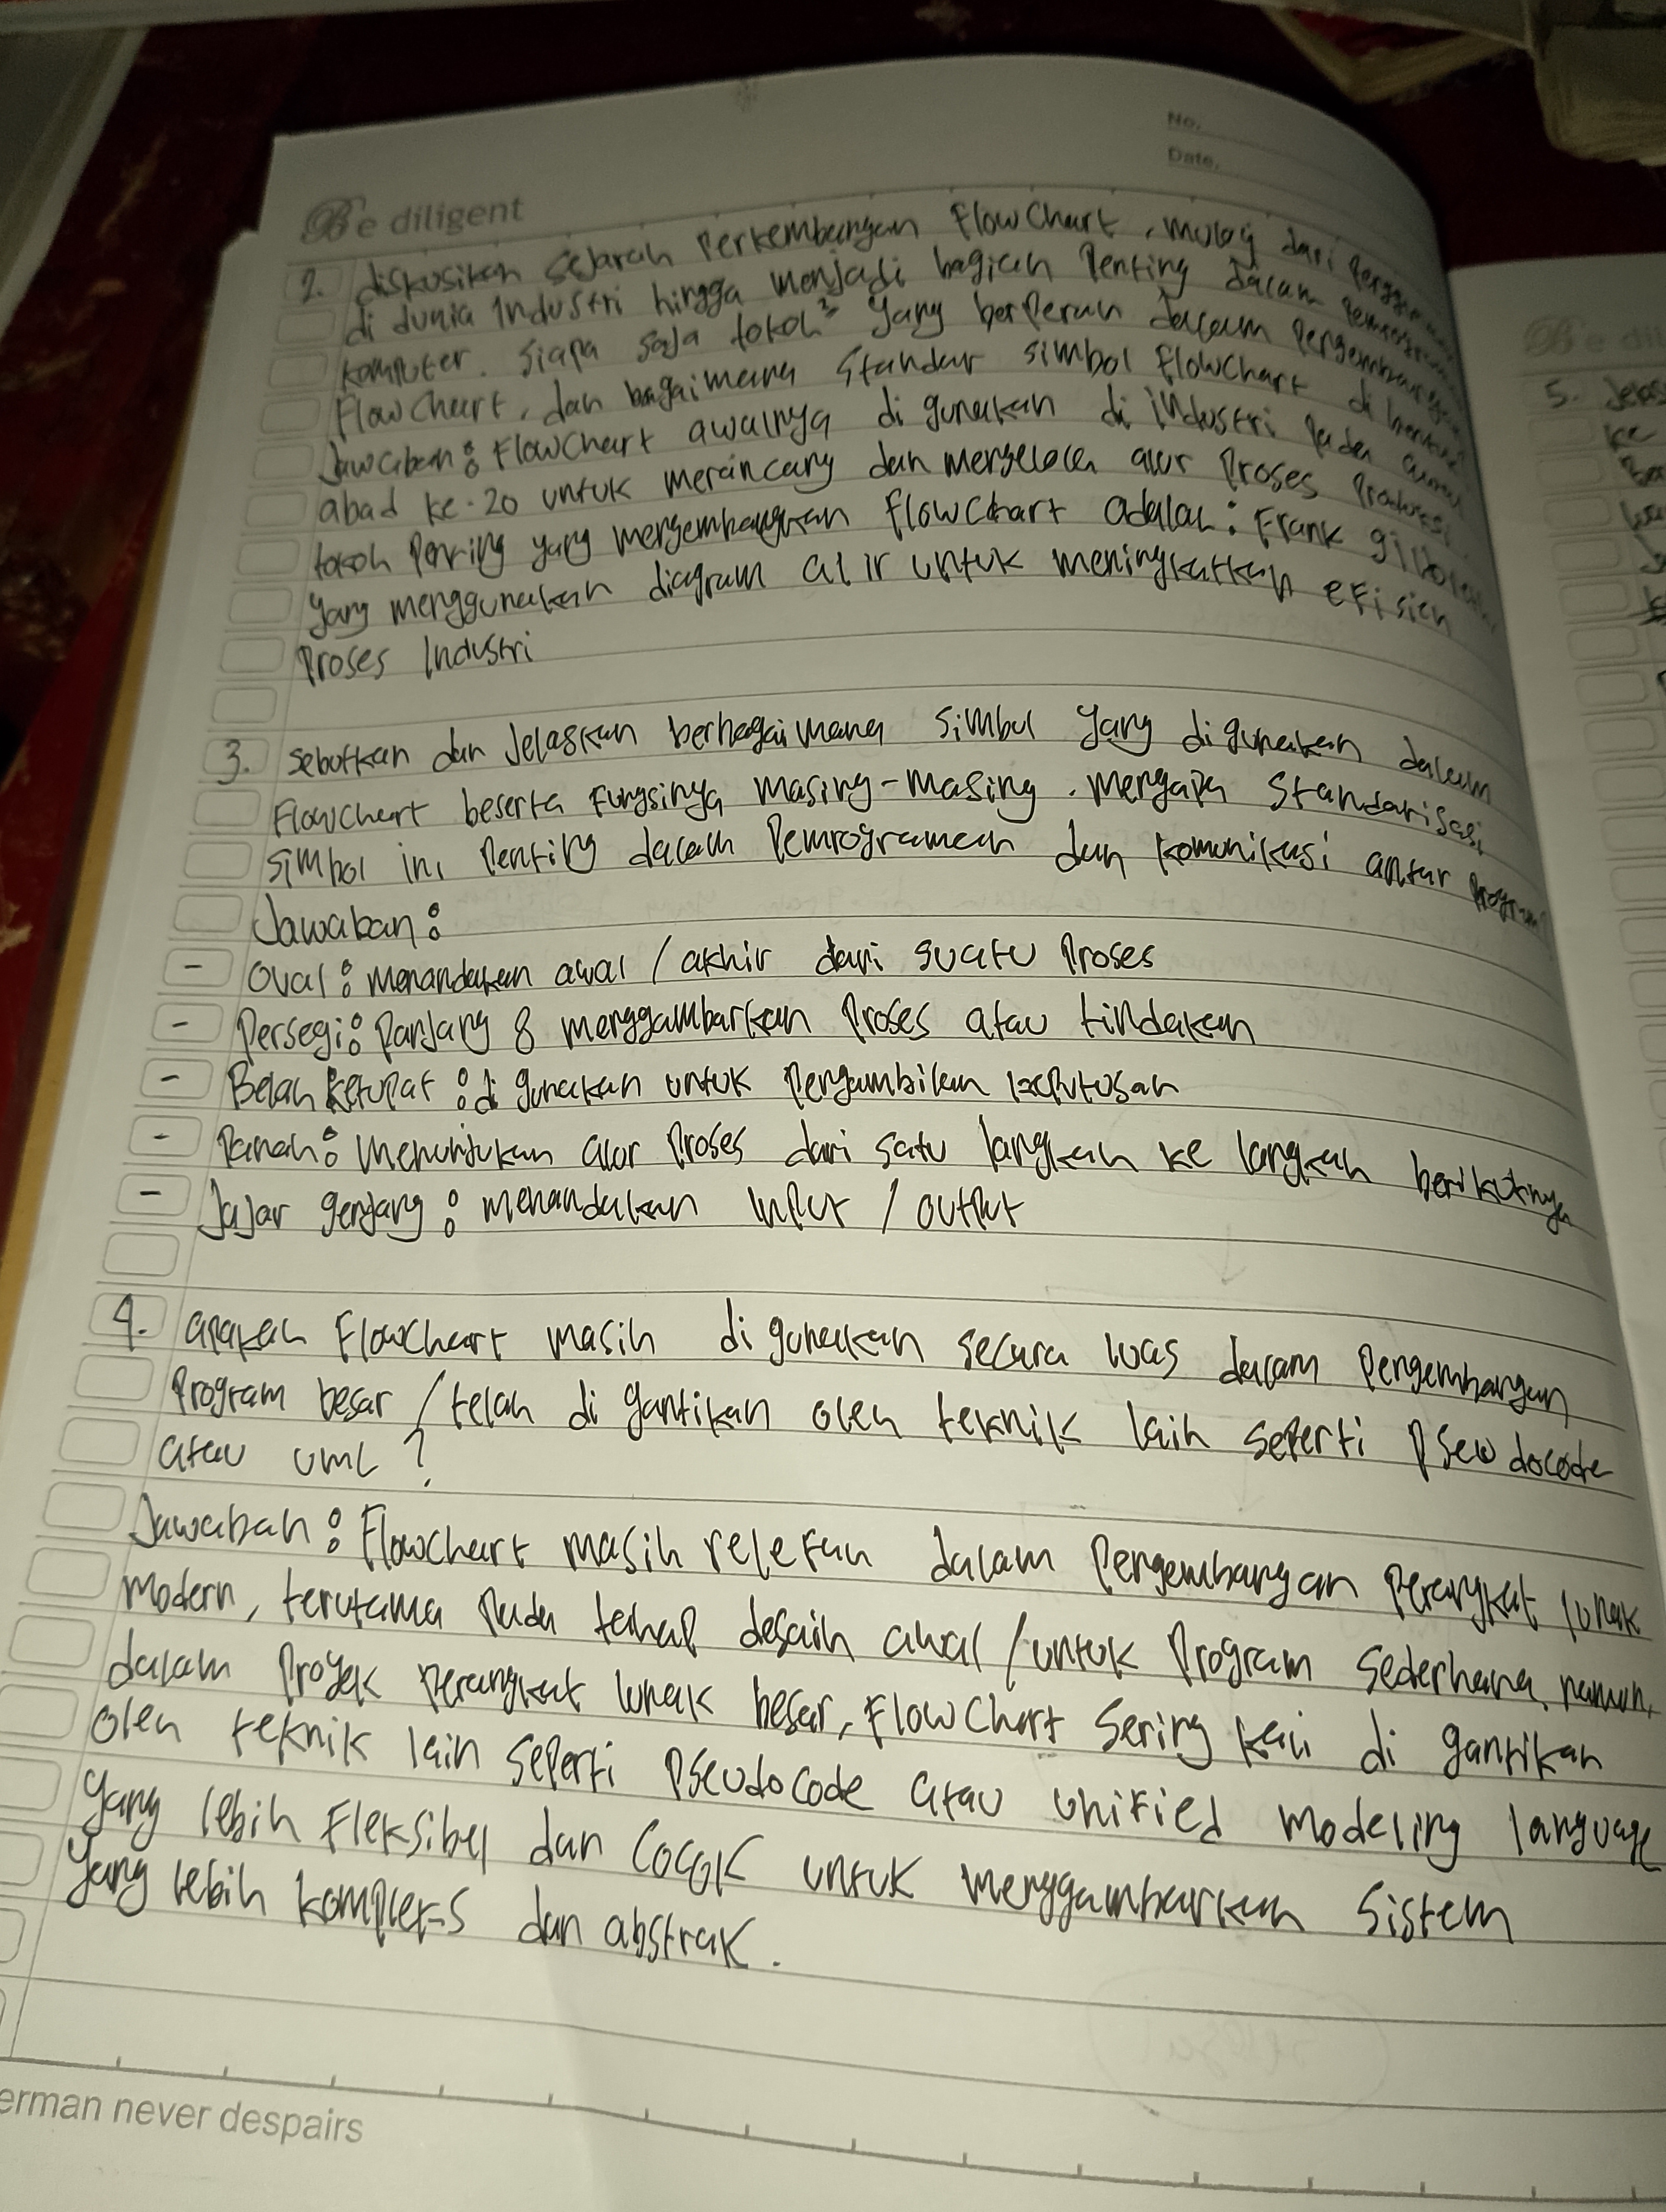 No.
Date.
Be diligent
2. diskusikan sejarah Perkembangan FlowChart, mulai dari
di dunia Industri hingga menjadi bagian Penting dalam
komputer. Siapa saja tokoh² yang berperan dalam
FlowChart, dan bagaimana Standar simbol FlowChart di
Jawaban : FlowChart awalnya di gunakan di industri Pada awal
abad ke-20 untuk merancang dan mengelola alur Proses Produksi.
tokoh Penting yang mengembangkan FlowChart adalah : Frank
yang menggunakan diagram alir untuk meningkatkan efisien
Proses Industri
3. sebutkan dan Jelaskan berbagaimana simbol yang di gunakan dalam
FlowChart beserta Fungsinya masing-masing. mengapa Standarisasi
simbol ini Penting dalam Pemrograman dan komunikasi antar Program
Jawaban :
- Oval : menandakan awal / akhir dari suatu Proses
- Persegi : Panjang : menggambarkan Proses atau tindakan
- Belah Ketupat : di gunakan untuk Pengambilan keputusan
- Panah : menunjukan alur Proses dari satu langkah ke langkah berikutnya
- Jajar genjang : menandakan Input / output
4. apakah FlowChart masih di gunakan secara luas dalam Pengembangan
Program besar / telah di gantikan oleh teknik lain seperti Pseudocode
atau UML ?
Jawaban : Flowchart masih relefan dalam Pengembangan Perangkat lunak
modern, terutama Pada tahap desain awal / untuk Program sederhana. namun,
dalam Proyek Perangkat lunak besar, FlowChart Sering kali di gantikan
oleh teknik lain seperti Pseudocode atau unified modeling language
yang lebih Fleksibel dan cocok untuk menggambarkan sistem
yang lebih kompleks dan abstrak.
erman never despairs
Be dil
5. Jelas
ke